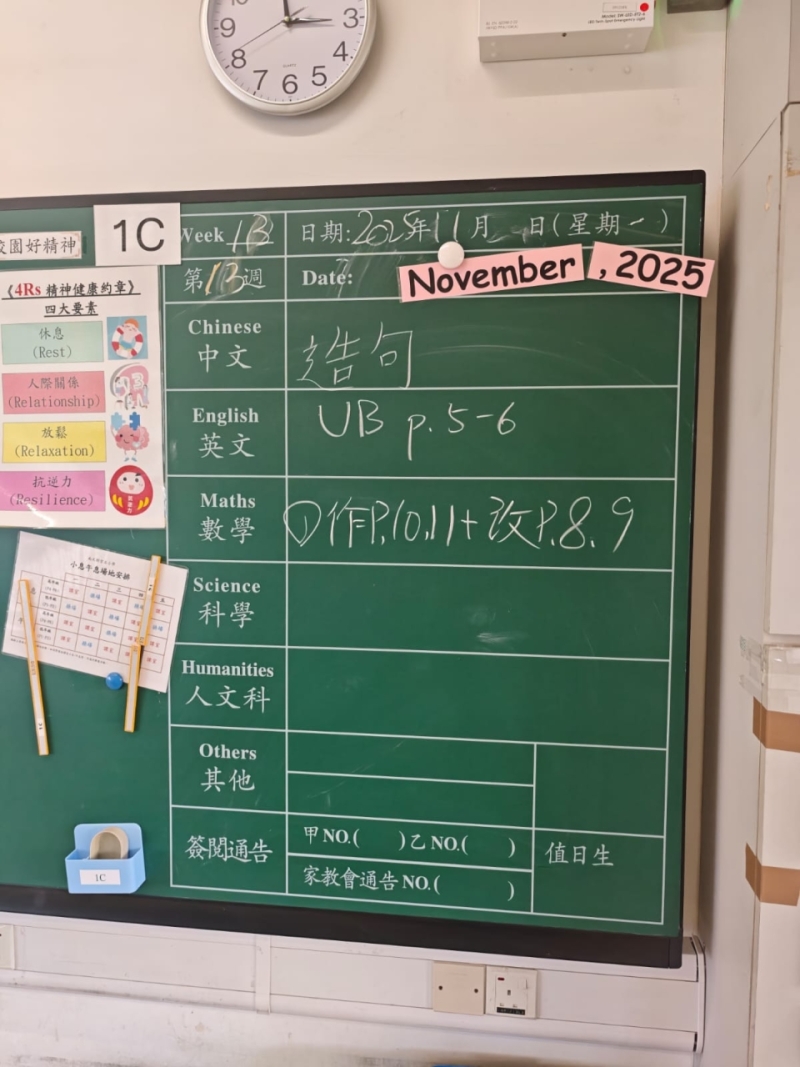 9
3
8
4
7
6
5
QUARTZ
校園好精神
1C
《4Rs 精神健康約章》
四大要素
休息
(Rest)
人際關係
(Relationship)
放鬆
(Relaxation)
抗逆力
(Resilience)
小息午息場地安排
1C
Week 13
日期:2025年11月 日(星期一)
第13週
Date:
November , 2025
Chinese
中文
造句
English
英文
UB p.5-6
Maths
數學
①作P.10,11+改P.8、9
Science
科學
Humanities
人文科
Others
其他
簽閱通告
甲NO.( )乙NO.( )
家教會通告NO.( )
值日生